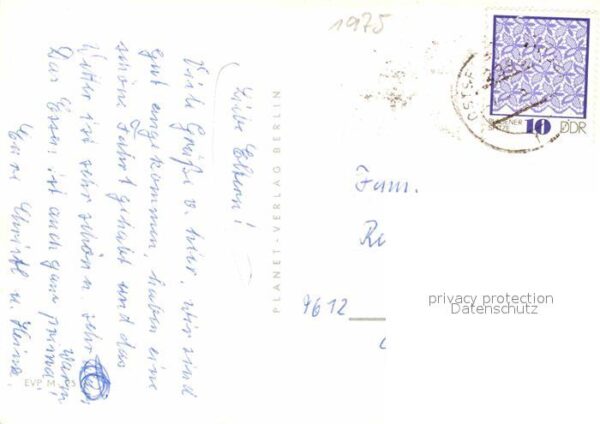 1975
Liebe Eltern!
Viele Grüße v. hier, wir sind
gut angekommen, haben eine
schöne Fahrt gehabt und das
Wetter ist sehr schön u. sehr
warm
Das Essen ist auch ganz prima,
Eure Christl u. Heinz
EVP M
PLANET-VERLAG BERLIN
SPITZE 10 DDR
Fam.
Re
9612
privacy protection
Datenschutz